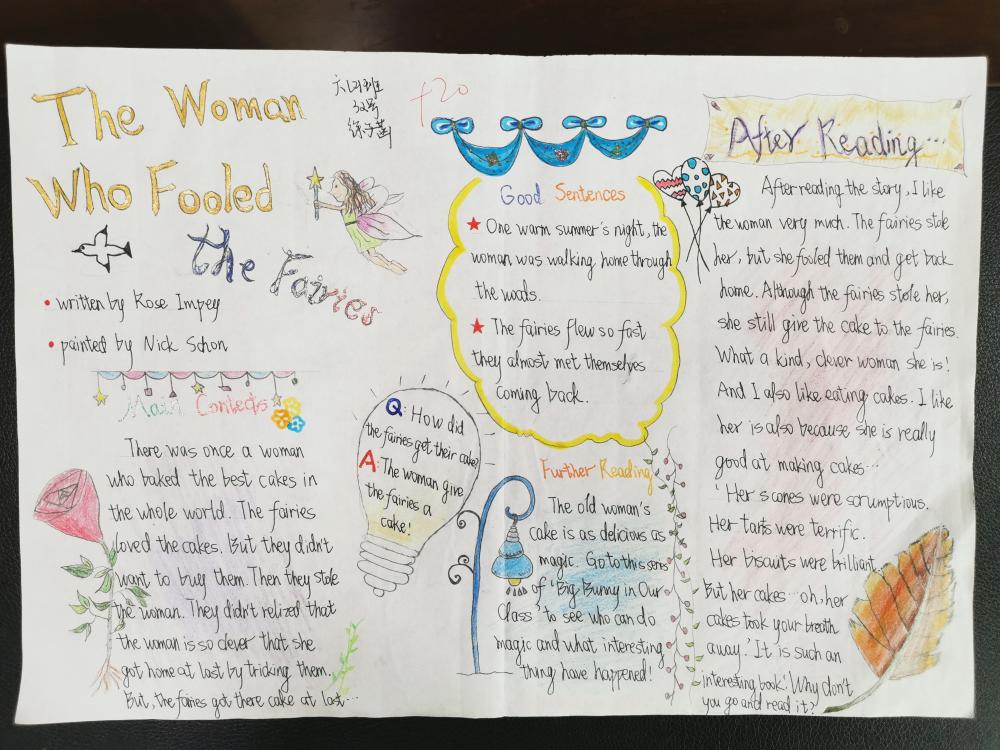 The Woman
Who Fooled
the Fairies
六(2)班
32号
徐子菡
+20
• written by Rose Impey
• painted by Nick Schon
Main Contects
There was once a woman
who baked the best cakes in
the whole world. The fairies
loved the cakes. But they didn't
want to buy them. Then they stole
the woman. They didn't relized that
the woman is so clever that she
got home at last by tricking them.
But, the fairies got there cake at last...
Q: How did
the fairies get their cake?
A: The woman give
the fairies a
cake!
Good Sentences
★ One warm summer's night, the
woman was walking home through
the woods.
★ The fairies flew so fast
they almost met themselves
coming back.
Further Reading
The old woman's
cake is as delicious as
magic. Go to this sens
of 'Big Bunny in Our
Class' to see who can do
magic and what interesting
thing have happened!
After Reading...
After reading the story, I like
the woman very much. The fairies stole
her, but she fooled them and get back
home. Although the fairies stole her,
she still give the cake to the fairies.
What a kind, clever woman she is!
And I also like eating cakes. I like
her is also because she is really
good at making cakes...
'Her scones were scrumptious.
Her tarts were terrific.
Her biscuits were brilliant.
But her cakes... oh, her
cakes took your breath
away.' It is such an
interesting book! Why don't
you go and read it?